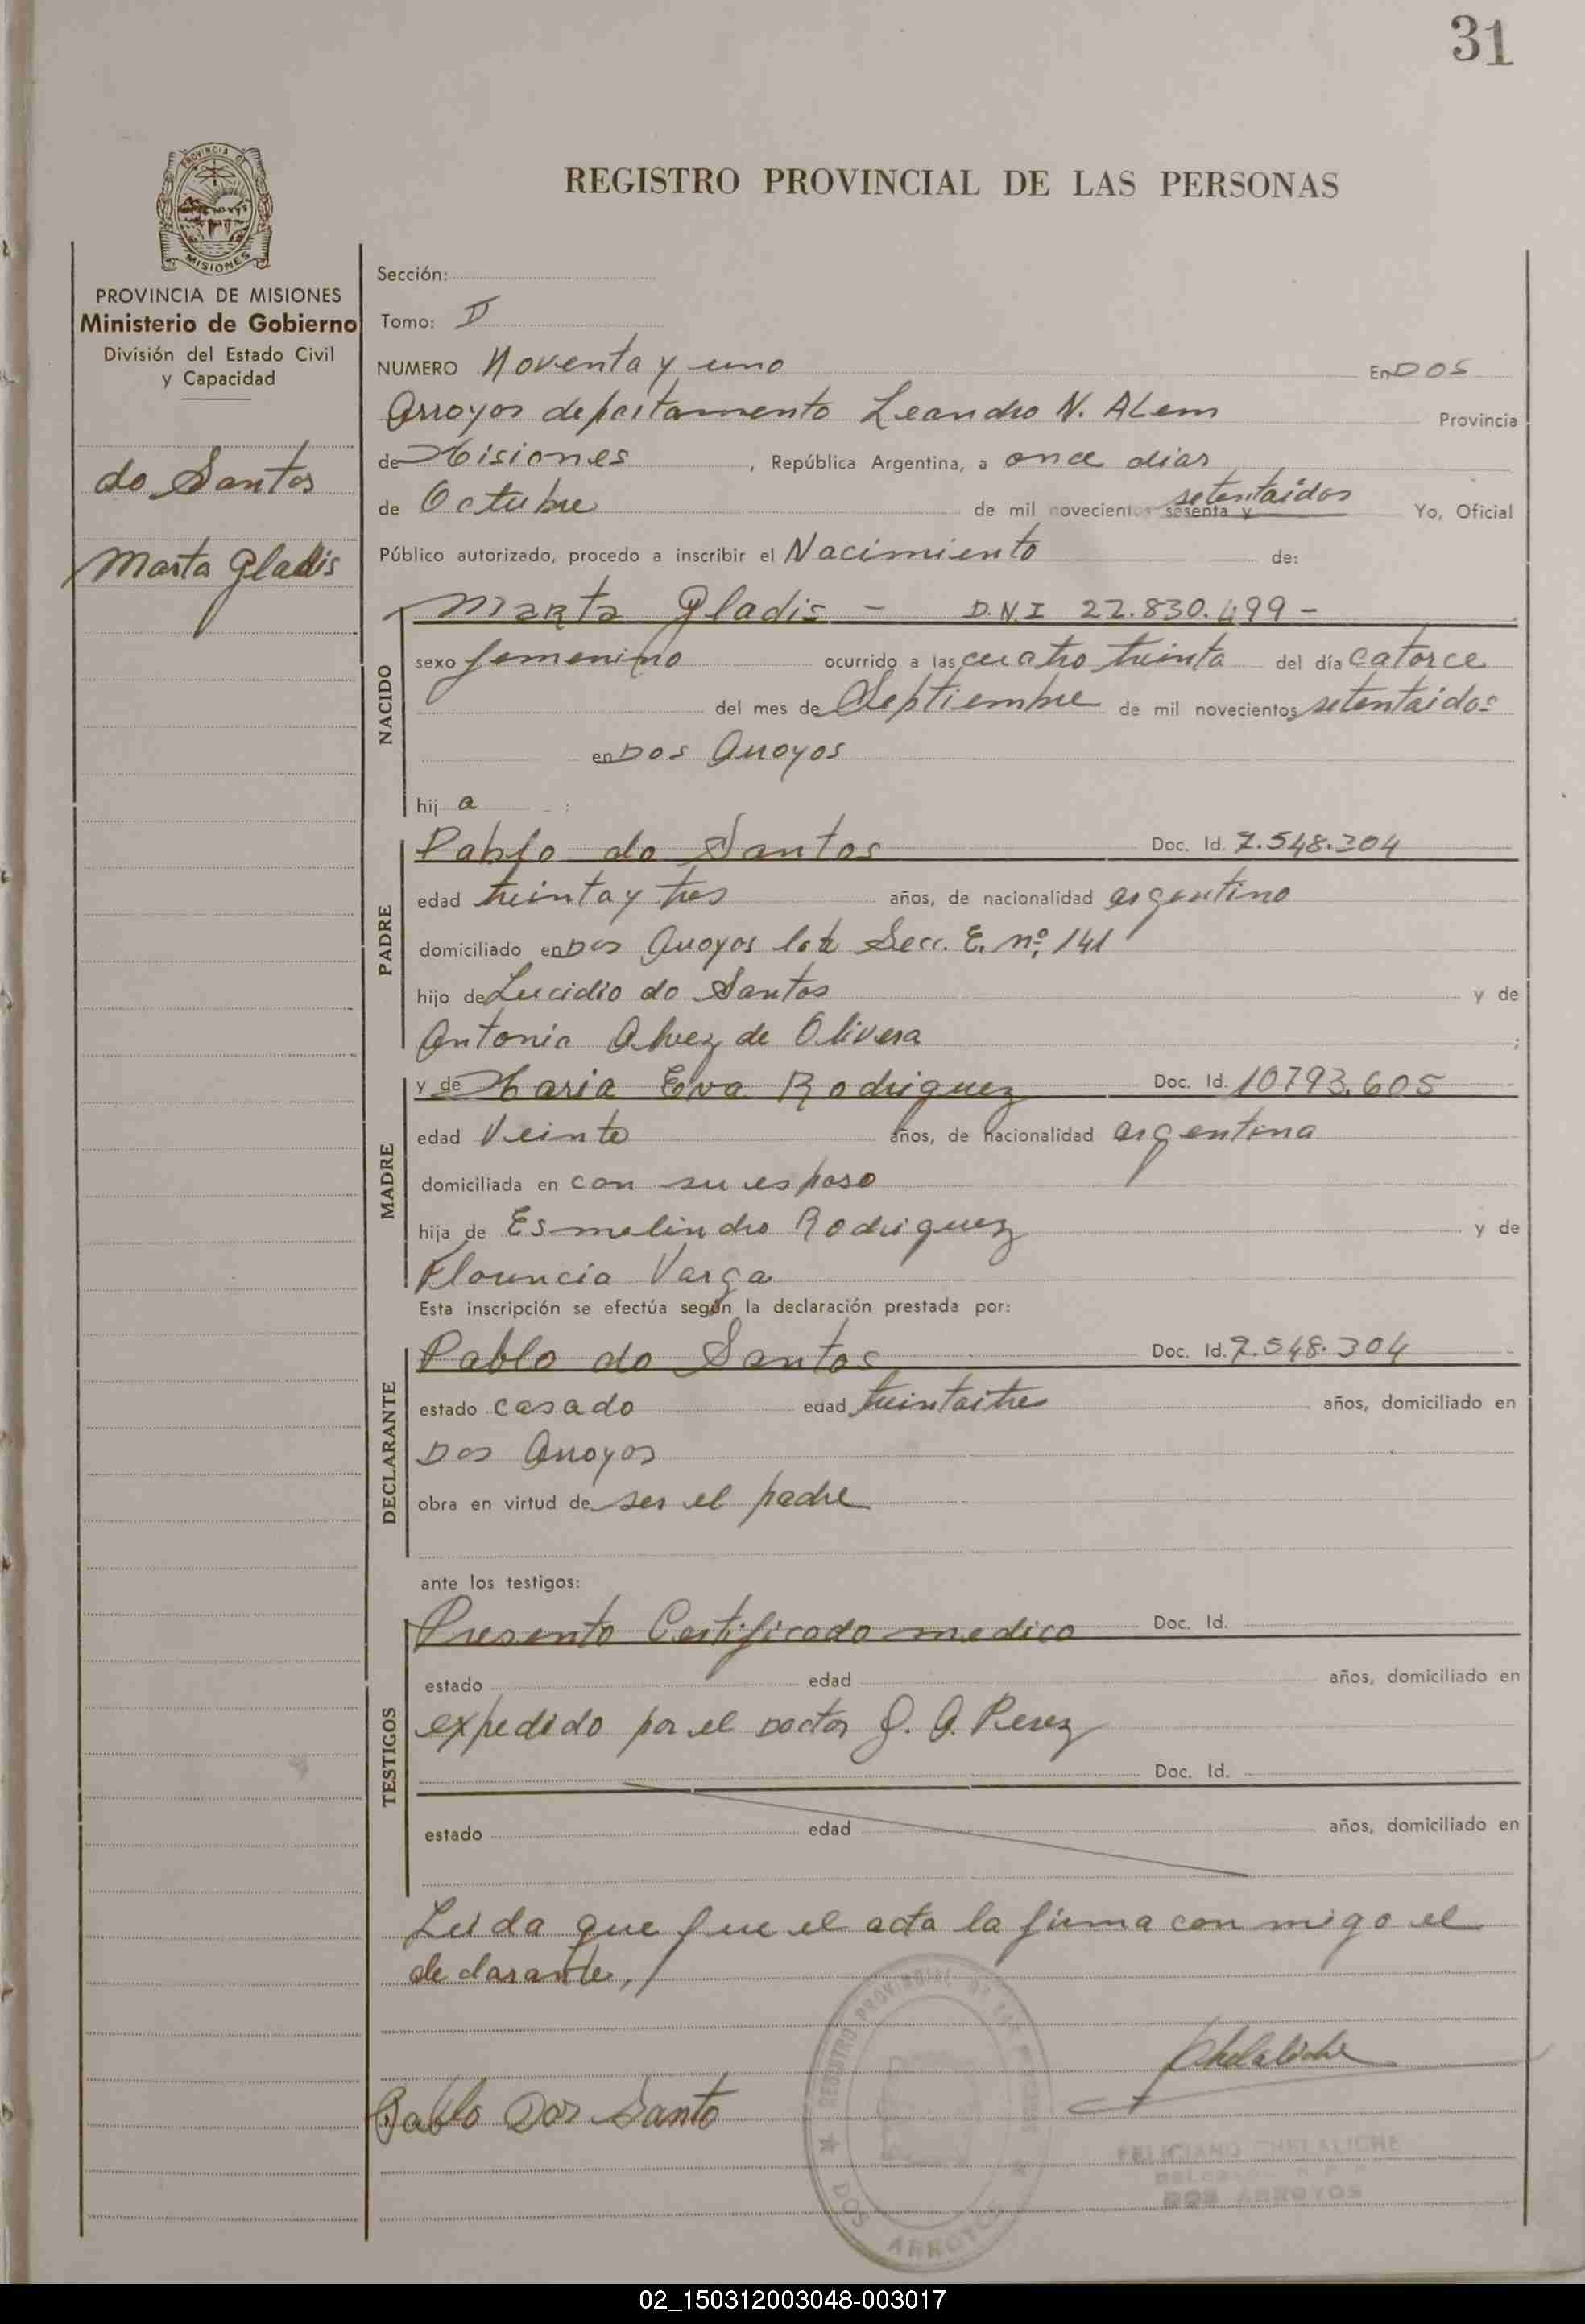 31
PROVINCIA DE
MISIONES
PROVINCIA DE MISIONES
Ministerio de Gobierno
División del Estado Civil
y Capacidad
do Santos
Marta Gladis
REGISTRO PROVINCIAL DE LAS PERSONAS
Sección:
Tomo: II
NUMERO Noventa y uno En DOS
Arroyos departamento Leandro N. ALem Provincia
de Misiones, República Argentina, a once dias
de Octubre de mil novecientos sesenta y setentaidos Yo, Oficial
Público autorizado, procedo a inscribir el Nacimiento de:
NACIDO
Marta Gladis - D.N.I 22.830.499 -
sexo femenino ocurrido a las cuatro treinta del día catorce
del mes de Septiembre de mil novecientos setentaidos
en Dos Arroyos
hij a :
PADRE
Pablo do Santos Doc. Id. 7.548.304
edad treinta y tres años, de nacionalidad argentino
domiciliado en Dos Arroyos lote Secc. E. nº 141
hijo de Lucidio do Santos y de
Antonia Alvez de Olivera ;
MADRE
y de Maria Eva Rodriguez Doc. Id. 10793.605
edad Veinte años, de nacionalidad argentina
domiciliada en con su esposo
hija de Esmelindro Rodriguez y de
Florencia Varga
Esta inscripción se efectúa según la declaración prestada por:
DECLARANTE
Pablo do Santos Doc. Id. 7.548.304
estado casado edad treintaitres años, domiciliado en
Dos Arroyos
obra en virtud de ser el padre
ante los testigos:
TESTIGOS
Presento Certificado medico Doc. Id.
estado edad años, domiciliado en
expedido por el Doctor J. A. Perez
Doc. Id.
estado edad años, domiciliado en
Leida que fue el acta la firma con migo el
declarante,
Chelaliche
Pablo Dos Santo
REGISTRO PROVINCIAL DE LAS PERSONAS
DOS ARROYOS
FELICIANO CHELALICHE
DOS ARROYOS
02_150312003048-003017